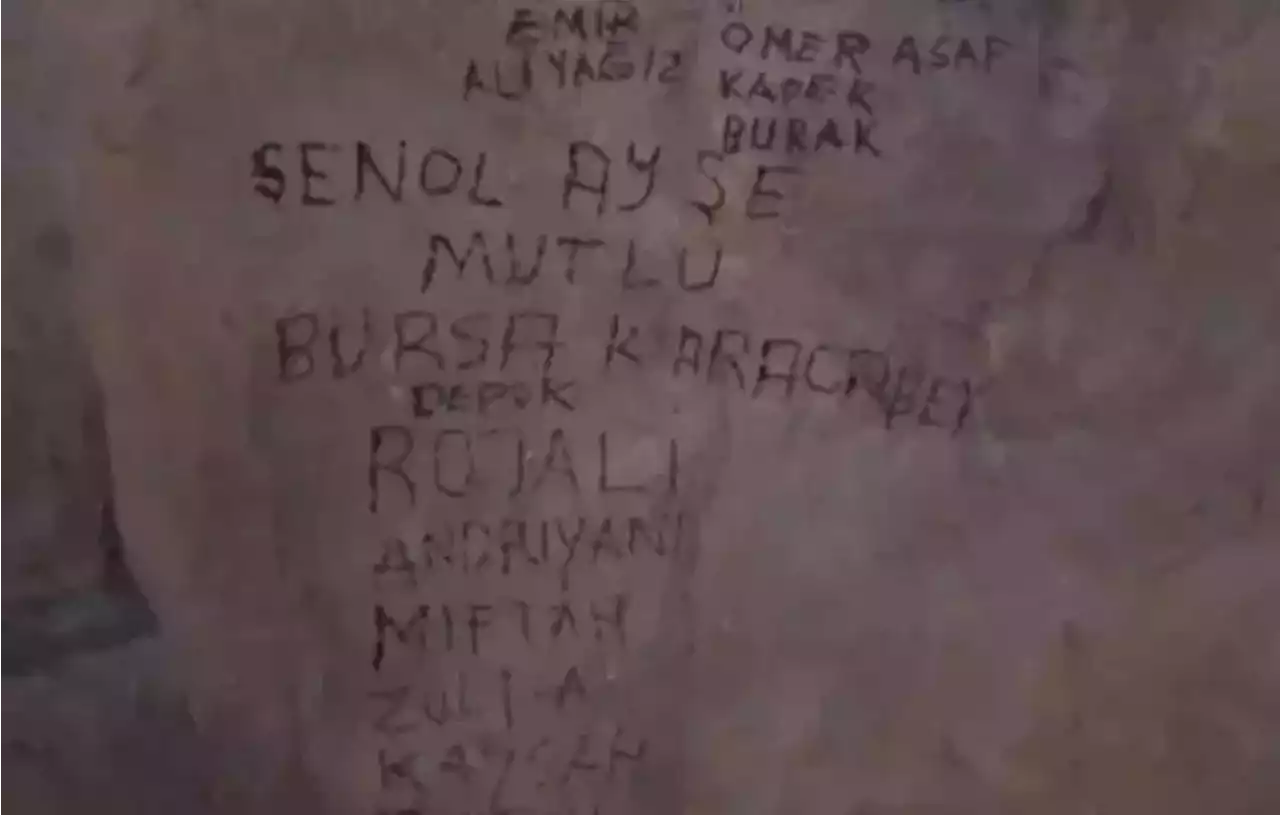 EMİR
ALİ YAĞIZ
ÖMER ASAF
KADER
BURAK
ŞENOL AYŞE
MUTLU
BURSA KARACABEY
DEPOK
ROJALI
ANDRIYANI
MIFTAH